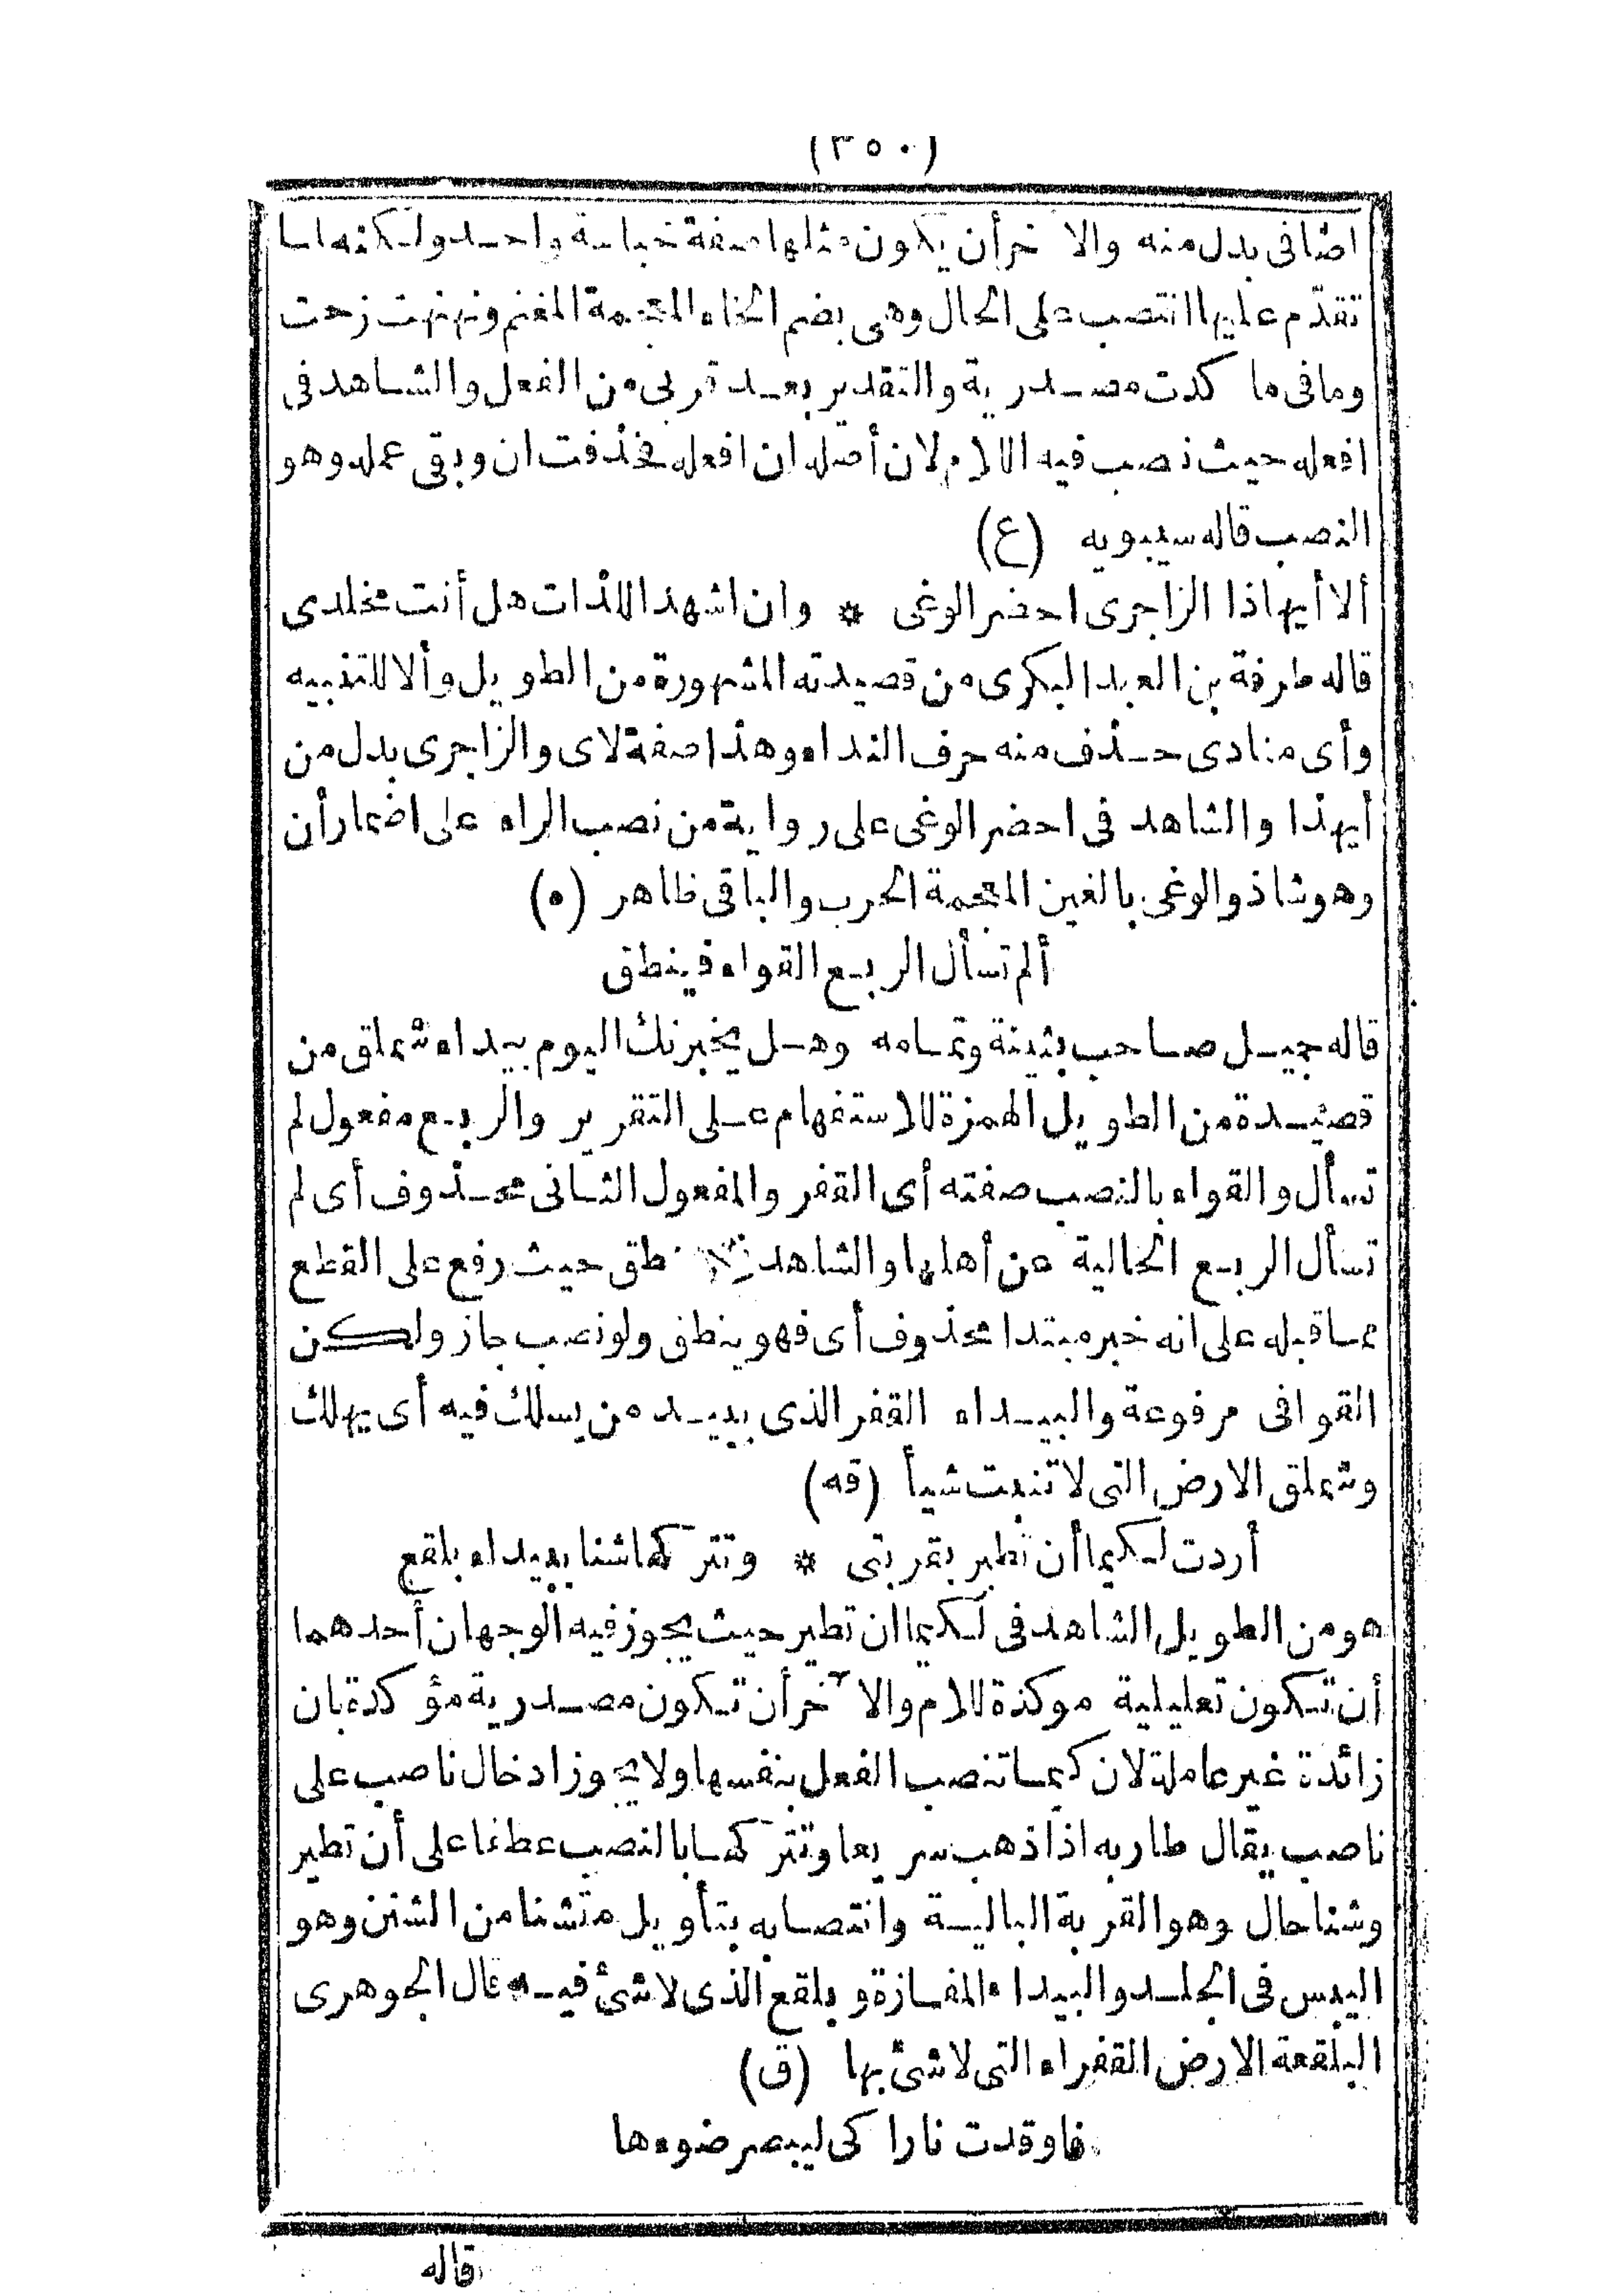 (٣٥٠)
اضافى بدل منه والا خرأن يكون مثلها صفة خباسة واحد ولكنه لما
تقدّم عليها انتصب على الحال وهى بضم الخاء المعجمة المغنم ونهنهت زحت
وما فى ما كدت مصدرية والتقدير بعد قربى من الفعل والشاهد فى
افعله حيث نصب فيه اللام لان أصله ان افعله فحذفت ان وبقى عمله وهو
النصب قاله سيبويه (ع)
ألا أيهاذا الزاجرى احضر الوغى * وان اشهد اللذات هل أنت مخلدى
قاله طرفة بن العبد البكرى من قصيدته المشهورة من الطويل وألا للتنبيه
وأى منادى حذف منه حرف النداء وهذا صفة لاى والزاجرى بدل من
أيهذا والشاهد فى احضر الوغى على رواية من نصب الراء على اضمار أن
وهو شاذ والوغى بالغين المعجمة الحرب والباقى ظاهر (ه)
ألم تسأل الربع القواء فينطق
قاله جميل صاحب بثينة وتمامه وهل يخبرنك اليوم بيداء شملق من
قصيدة من الطويل الهمزة للاستفهام على التقرير والربع مفعول لم
تسأل والقواء بالنصب صفته أى القفر والمفعول الثانى محذوف أى لم
تسأل الربع الخالية عن أهلها والشاهد طق حيث رفع على القطع
عما قبله على انه خبر مبتدا محذوف أى فهو ينطق ولو نصب جاز ولكن
القوافى مرفوعة والبيداء القفر الذى يبيد من يسلك فيه أى يهلك
وشملق الارض التى لا تنبت شيأ (قه)
أردت لكيما أن تطير بقربتى * وتتركها شنا ببيداء بلقع
هو من الطويل الشاهد فى لكيما ان تطير حيث يجوز فيه الوجهان أحدهما
أن تكون تعليلية موكدة للام والآخر أن تكون مصدرية مؤكدة بان
زائدة غير عاملة لان كيما تنصب الفعل بنفسها ولا يجوز ادخال ناصب على
ناصب يقال طار به اذا ذهب سريعا وتتركها بالنصب عطفا على أن تطير
وشنا حال وهو القربة البالية وانتصابه بتأويل متشنا من الشنن وهو
اليبس فى الجلد والبيداء المفازة وبلقع الذى لا شئ فيه قال الجوهرى
البلقعة الارض القفراء التى لا شئ بها (ق)
فاوقدت نارا كى ليبصر ضوءها
قاله